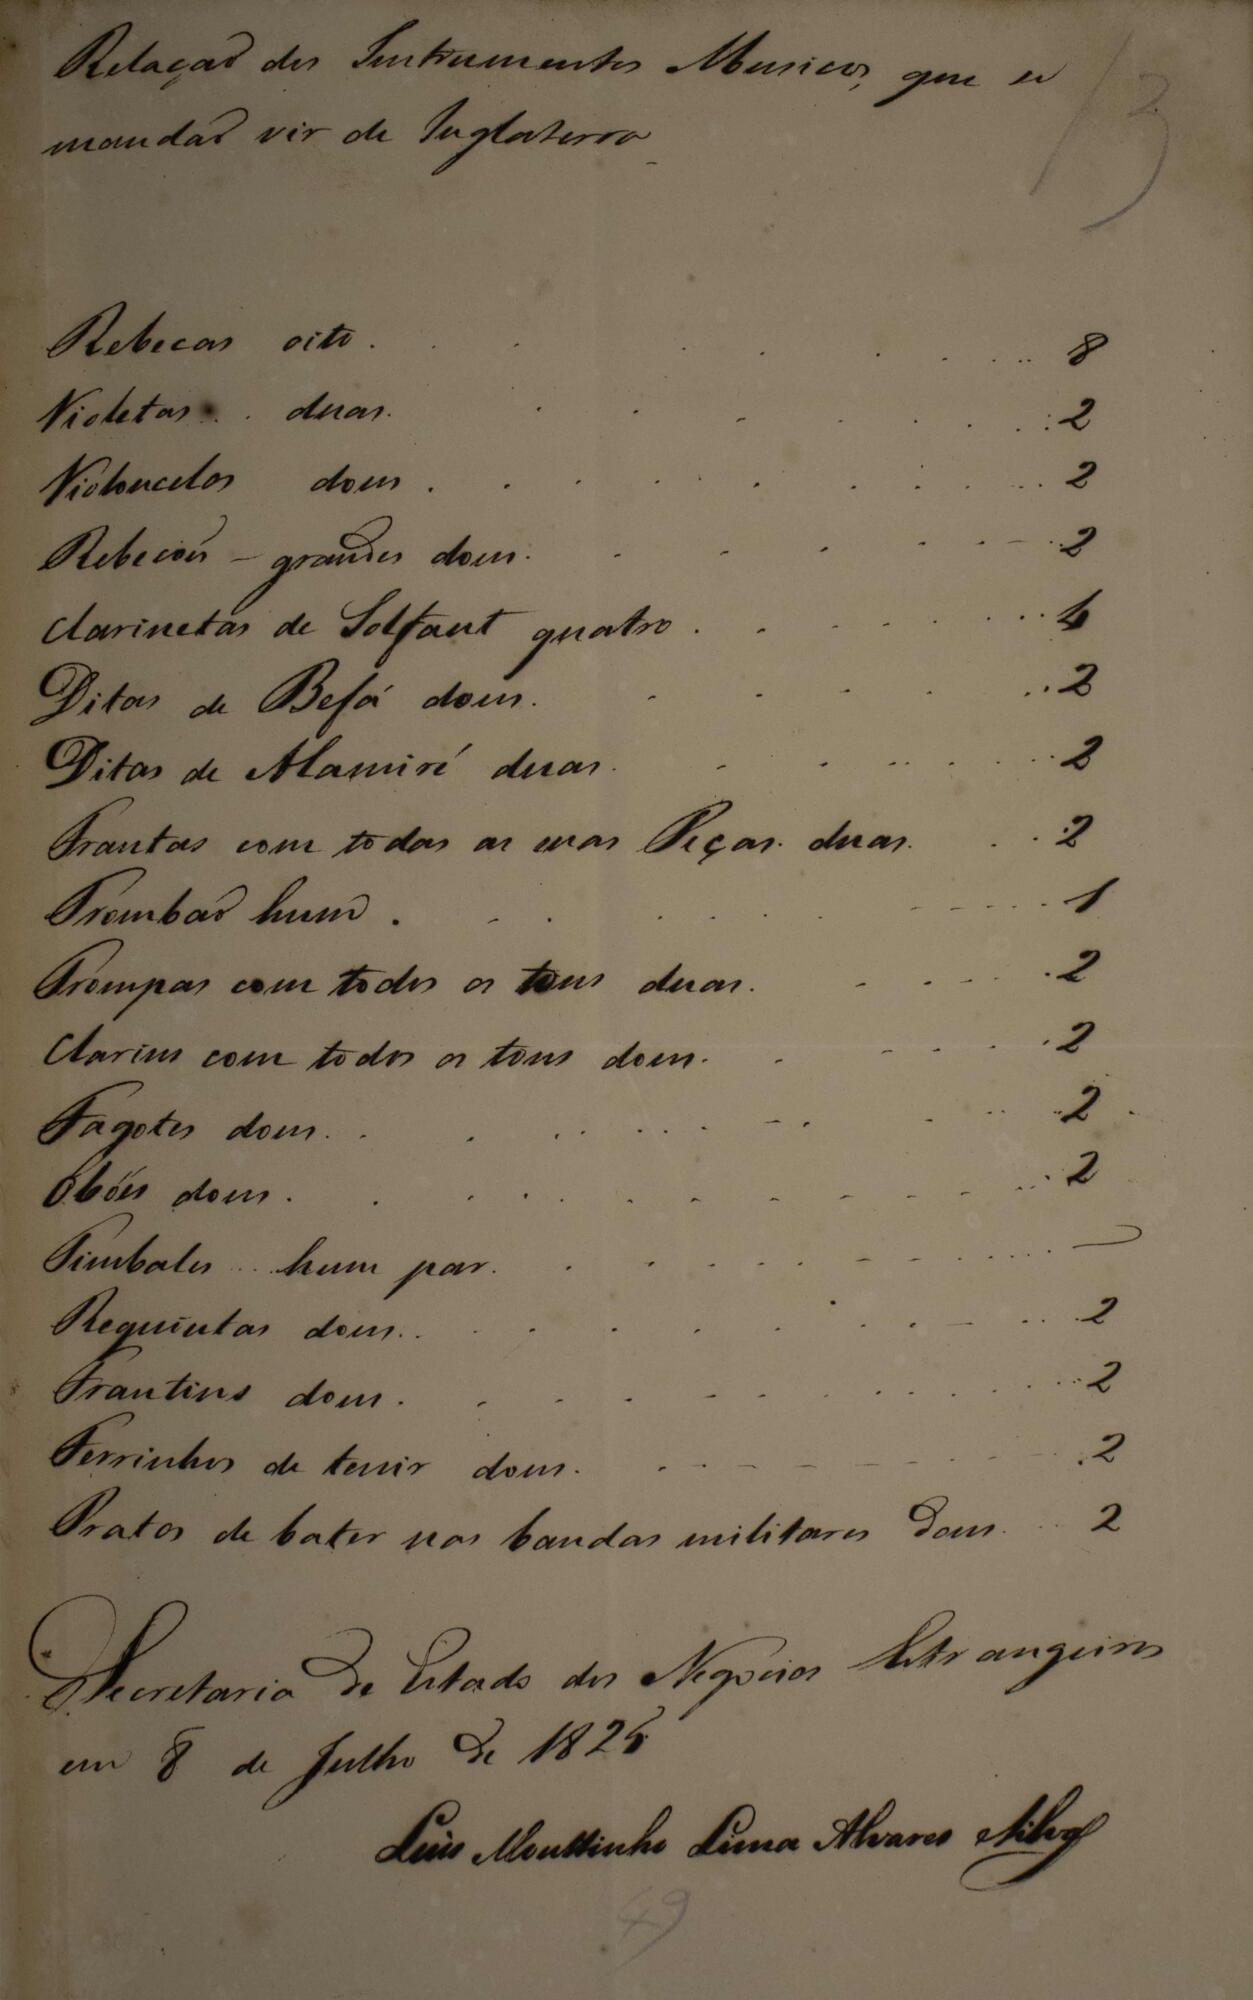 Relação dos Instrumentos Musicos, que se
mandão vir de Inglaterra
13
Rebecas oito. 8
Violetas duas. 2
Violoncelos dous. 2
Rebecões - grandes dous. 2
Clarinetas de Solfaut quatro. 4
Ditas de Befá dous. 2
Ditas de Alamiré duas. 2
Frautas com todas as suas Peças duas. 2
Trombão hum. 1
Trompas com todos os tons duas. 2
Clarins com todos os tons dous. 2
Fagotes dous. 2
Obóes dous. 2
Timbales hum par.
Requintas dous. 2
Frautins dous. 2
Ferrinhos de tenir dous. 2
Pratos de bater nas bandas militares dous 2
Secretaria de Estado dos Negocios Estrangeiros
em 8 de Julho de 1825
Luis Mouttinho Lima Alvares Silva
49